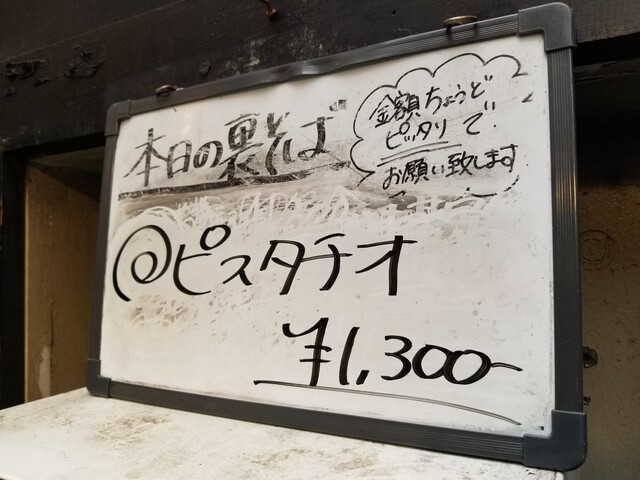 本日の裏そば
金額ちょうど
ピッタリで
お願い致します
@ピスタチオ
¥1,300-